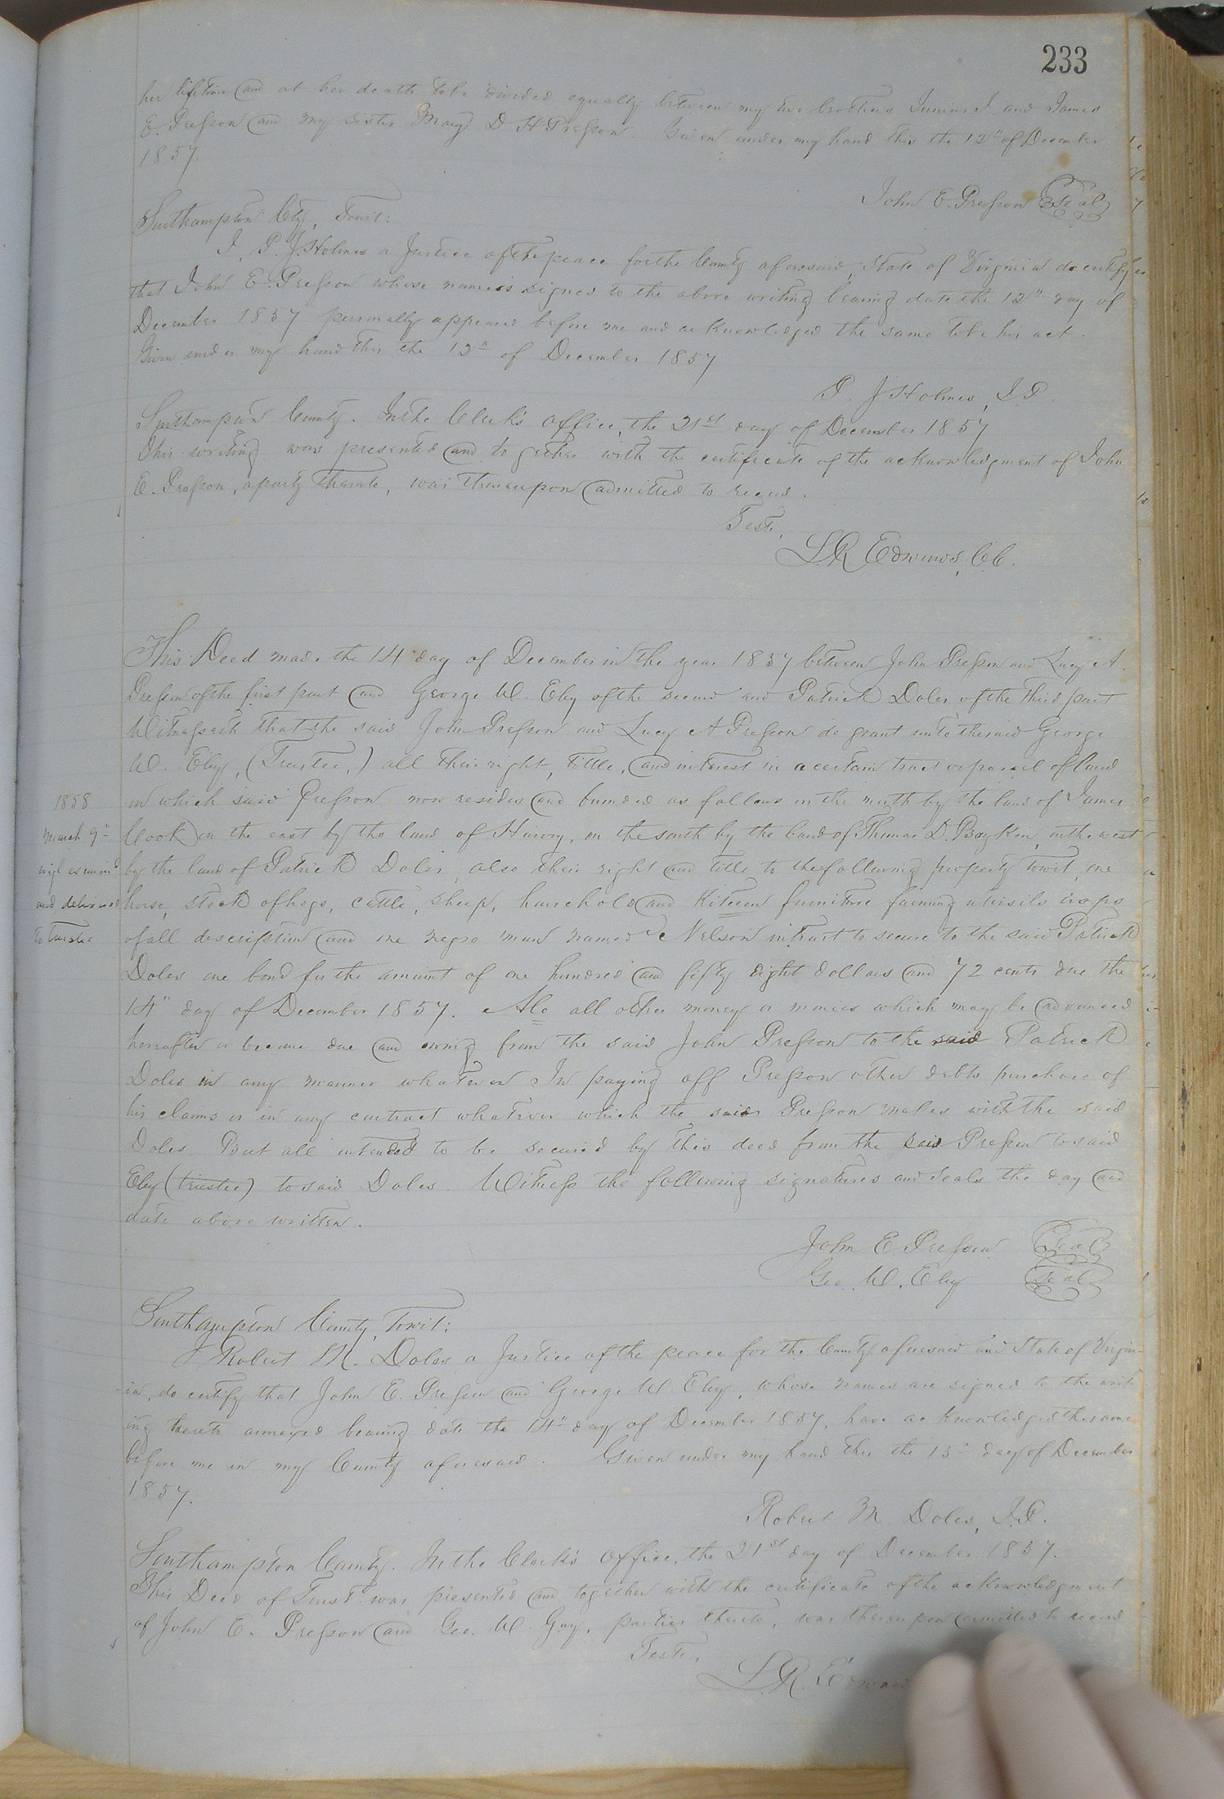 233
her lifetime and at her death to be divided equally between my two brothers Junius J. and James
E. Presson and my sister Mary D. H Presson. Given under my hand this the 12th of December
1857.
John E. Presson Seal
Southampton Cty, Towit:
I, P. J. Holmes a Justice of the peace for the County aforesaid, State of Virginia do certify
that John E. Presson whose name is signed to the above writing bearing date the 12th day of
December 1857 personally appeared before me and acknowledged the same to be his act.
Given under my hand this the 12th of December 1857
P. J Holmes, J.P.
Southampton County. In the Clerk's Office, the 21st day of December 1857
This writing was presented and together with the certificate of the acknowledgment of John
E. Presson, a party thereto, was thereupon admitted to record.
Teste,
L R Edwards, C.C.
This Deed made the 14 day of December in the year 1857 between John Presson and Lucy A.
Presson of the first part and George W. Eley of the second and Patrick Doles of the third part
Witnesseth that the said John Presson and Lucy A Presson do grant unto the said George
W. Eley, (Trustee,) all their right, tittle, and interest in a certain tract or parcel of land
on which said Presson now resides and bounded as follows on the north by the land of James
Cook on the east by the land of Harvy, on the south by the land of Thomas D. Boykin, on the west
by the land of Patrick Doles, also their right and title to the following property towit, one
horse, stock of hogs, cattle, sheep, household and kitchen furniture farming utensils crops
of all description and one negro man named Nelson in trust to secure to the said Patrick
Doles one bond for the amount of one hundred and fifty eight dollars and 72 cents due the
14th day of December 1857. Also all other money or monies which may be advanced
hereafter or become due and owing from the said John Presson to the said Patrick
Doles in any manner whatever In paying off Presson other debts purchase of
his claims or in any contract whatever which the said Presson makes with the said
Doles But all intended to be secured by this deed from the said Presson to said
Eley (trustee) to said Doles. Witness the following signatures and seals the day and
date above written.
1858
March 9th
orgl examind
and delivered
to trustee
John E. Presson Seal
Geo. W. Eley Seal
Southampton County, Towit:
I Robert M. Doles a Justice of the peace for the County aforesaid and State of Virgin-
ia, do certify that John E. Presson and George W. Eley, whose names are signed to the writ
ing hereto annexed bearing date the 14th day of December 1857, have acknowledged the same
before me in my County aforesaid. Given under my hand this the 15th day of December
1857.
Robert M. Doles, J.P.
Southampton County. In the Clerk's Office, the 21st day of December 1857.
This Deed of Trust was presented and together with the certificate of the acknowledgment
of John E. Presson and Geo. W. Guy, parties thereto, was thereupon admitted to record
Teste,
L. R. Edward